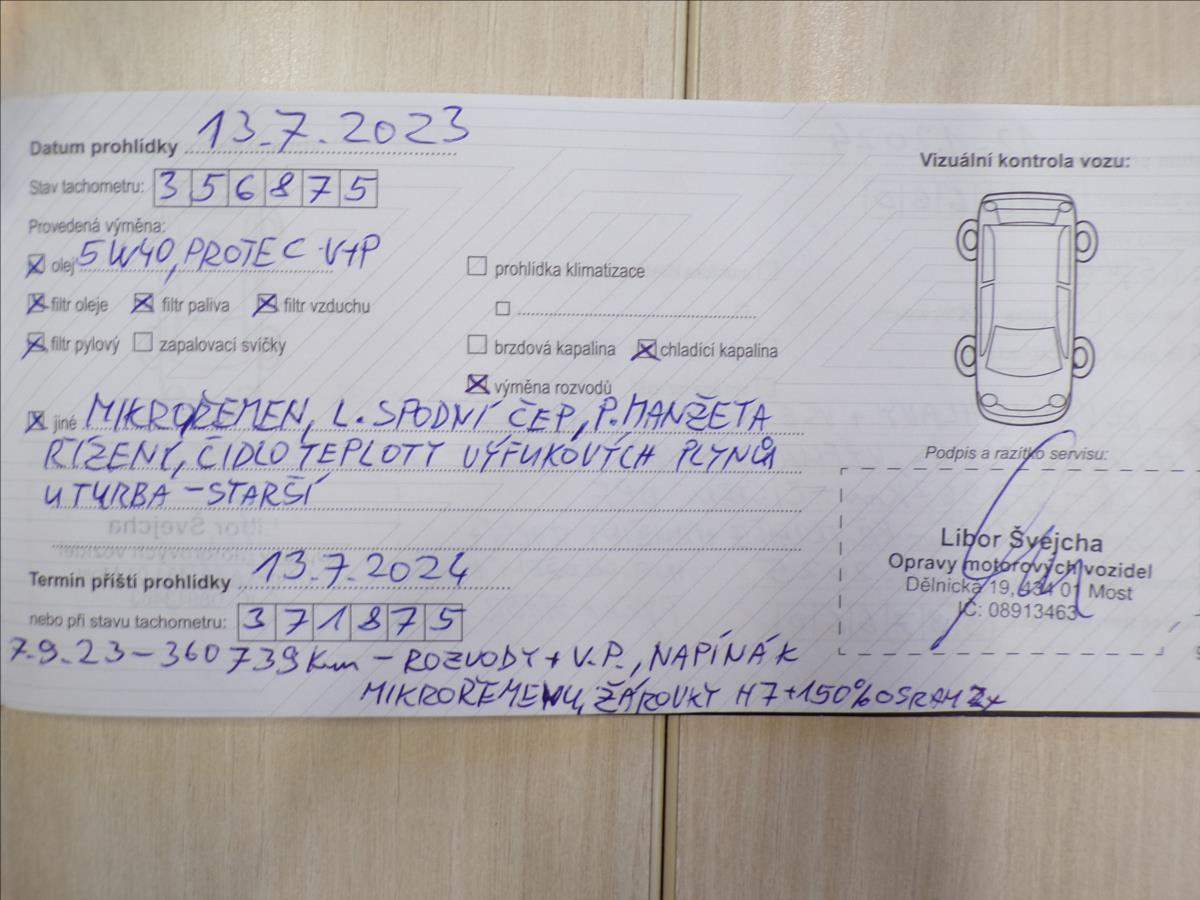 Datum prohlídky 13.7.2023
Stav tachometru: 356875
Provedená výměna:
olej 5W40, PROTEC V+P
filtr oleje filtr paliva filtr vzduchu
filtr pylový zapalovací svíčky
prohlídka klimatizace
brzdová kapalina chladící kapalina
výměna rozvodů
jiné MIKROŘEMEN, L. SPODNÍ ČEP, P. MANŽETA
ŘÍZENÍ, ČIDLO TEPLOTY VÝFUKOVÝCH PLYNŮ
U TURBA - STARŠÍ
Termín příští prohlídky 13.7.2024
nebo při stavu tachometru: 371875
7.9.23 - 360739 Km - ROZVODY + V.P., NAPÍNÁK
MIKROŘEMENU, ŽÁROVKY H7 +150% OSRAM 2x
Vizuální kontrola vozu:
Podpis a razítko servisu:
Libor Švejcha
Opravy motorových vozidel
Dělnická 19, 434 01 Most
IČ: 08913463